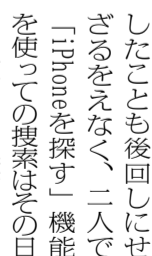 したことも後回しにせ
ざるをえなく、二人で
「iPhoneを探す」機能
を使っての捜索はその日